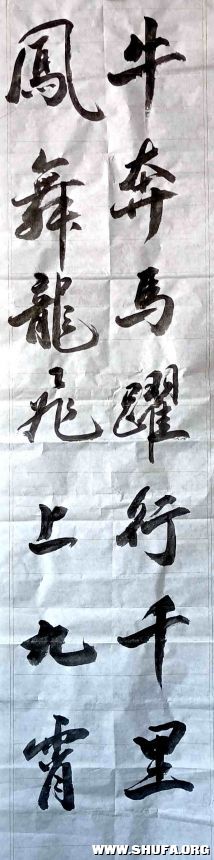 牛奔馬躍行千里
鳳舞龍飛上九霄
WWW.SHUFA.ORG